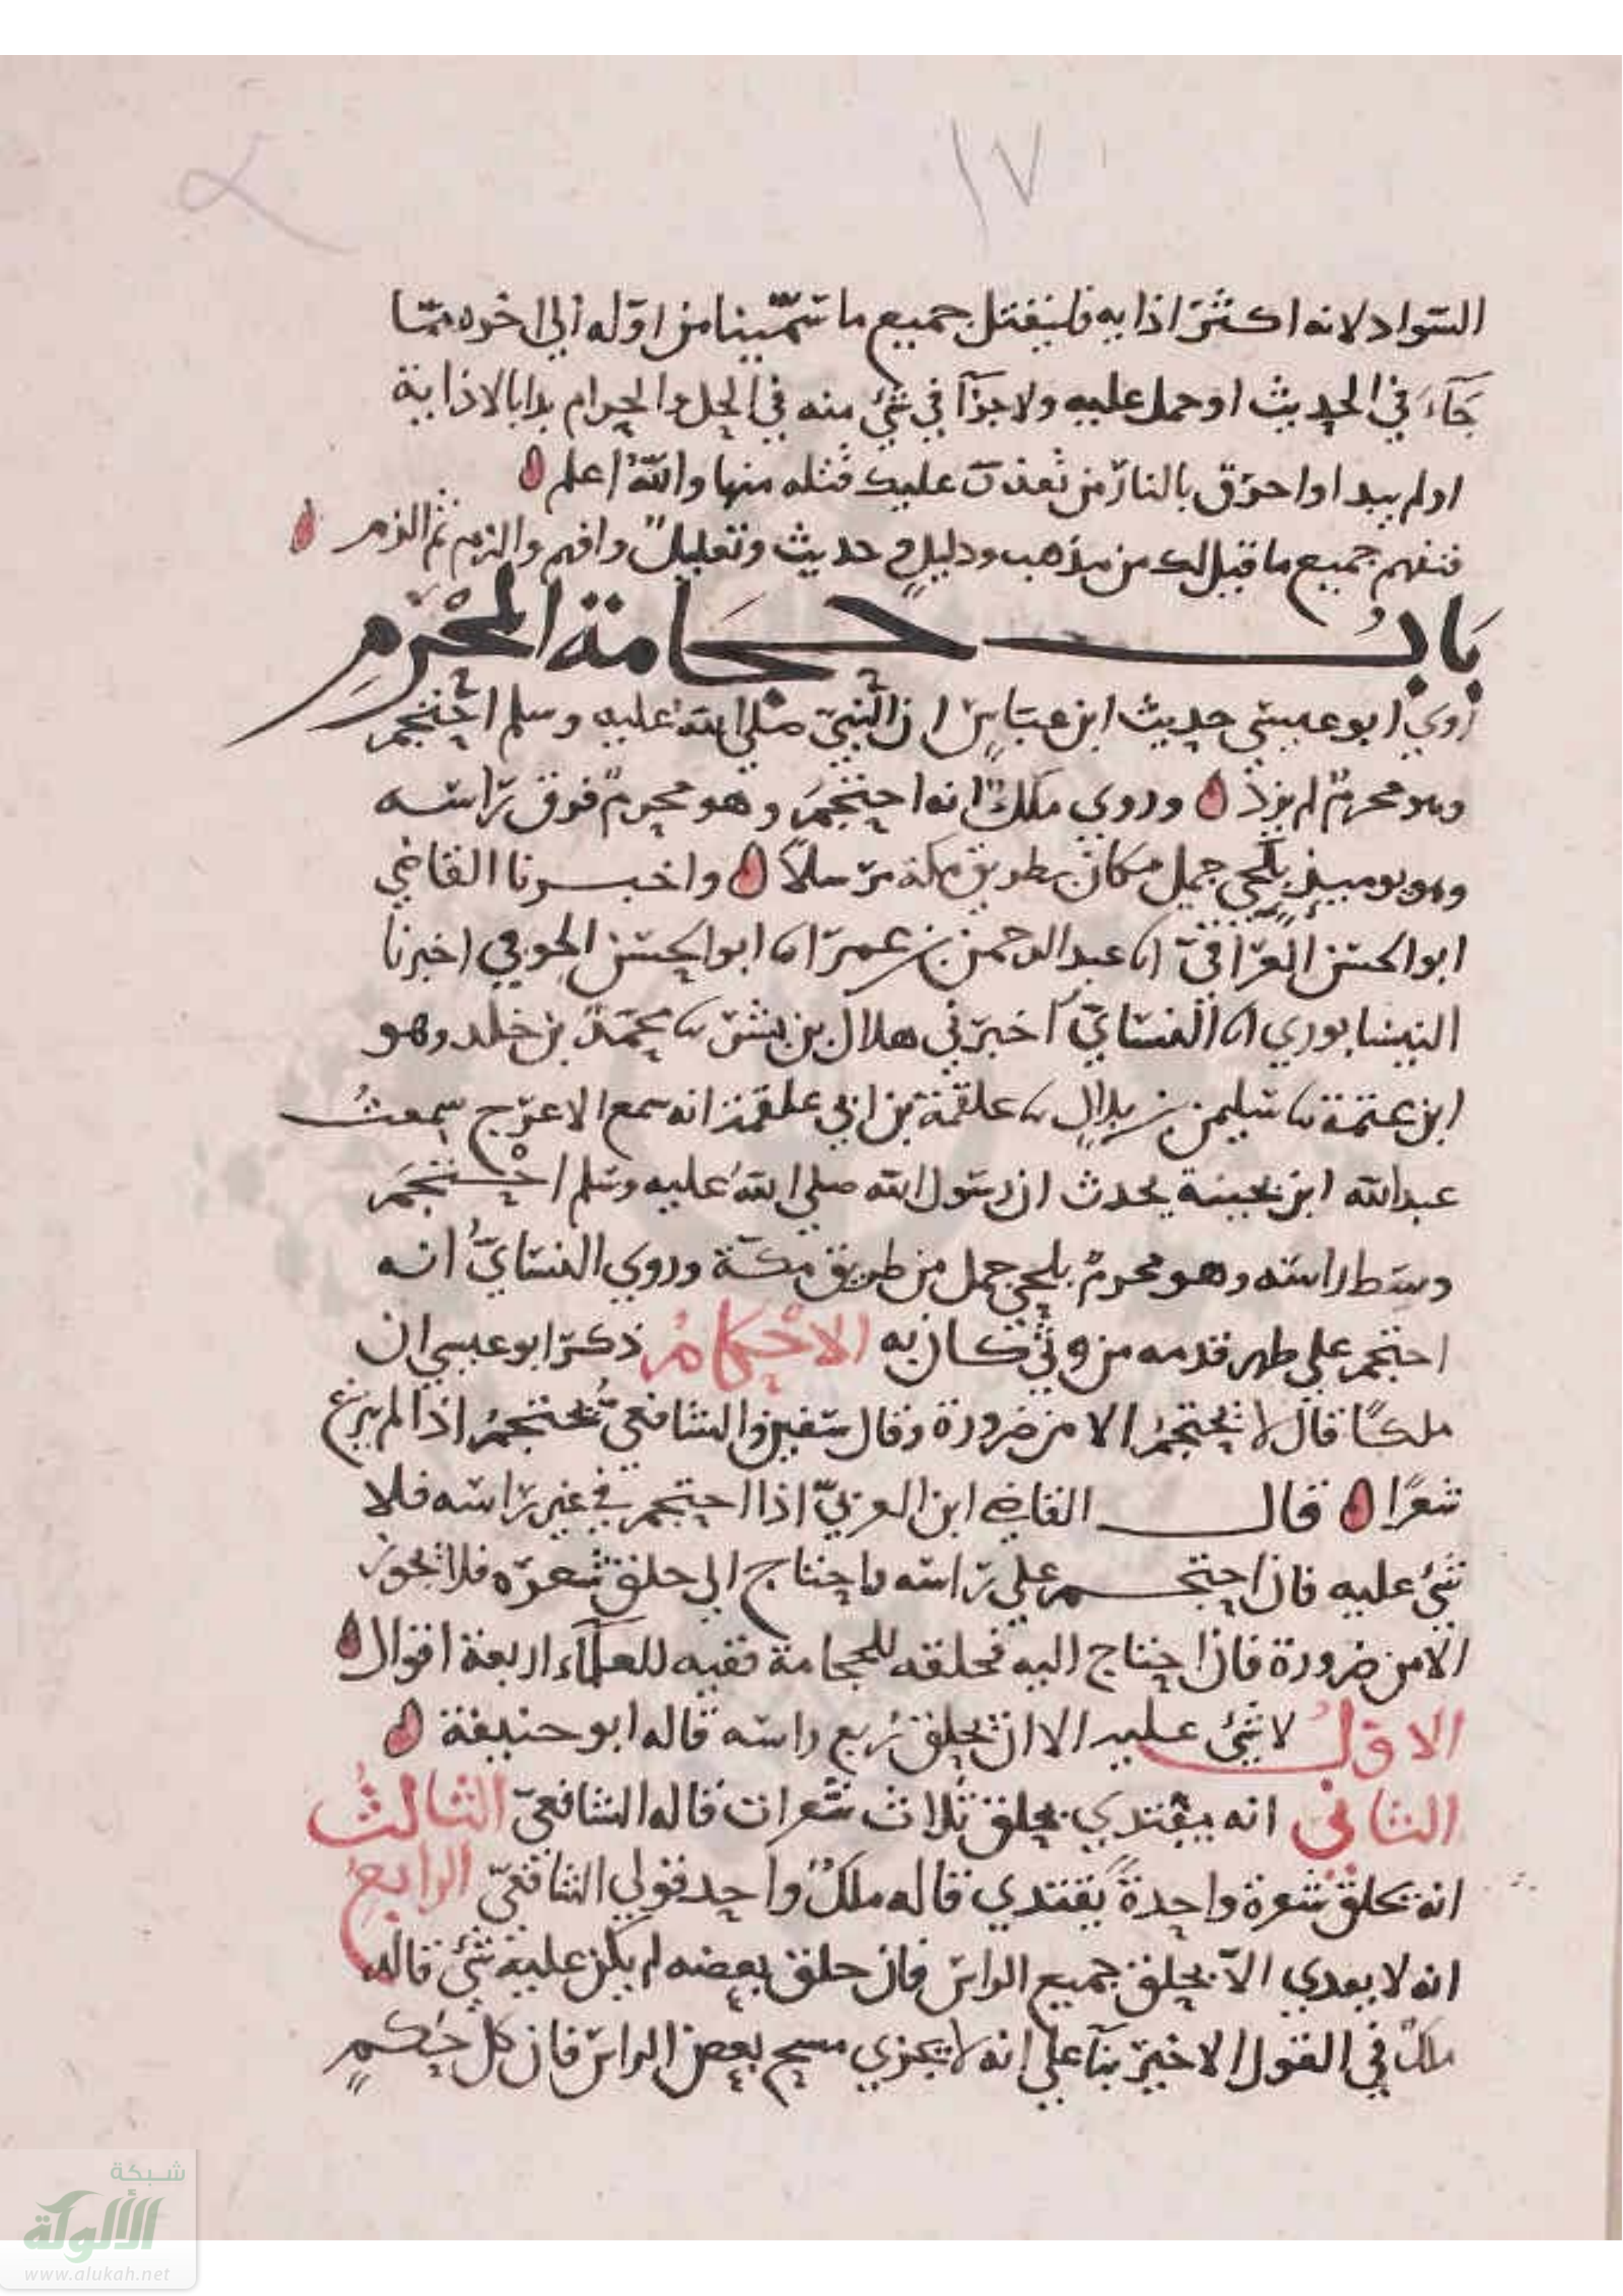 ١٧
السواد لانه اكثر اذايه فليقتل جميع ما سمينا من اوله الى اخره مما
جاء في الحديث او حمل عليه ولا جزآ في شيء منه في الحل والحرام بدا بالاذاية
او لم يبدا واحرق بالنار من تعذرت عليك قتله منها والله اعلم
فتفهم جميع ما قيل لك من مذهب ودليل وحديث وتعليل وافهم والزم ثم الزم
باب حجامة المحرم
روي ابو عيسي حديث ابن عباس ان النبي صلى الله عليه وسلم احتجم
وهو محرم لم يزد وروي ملك انه احتجم وهو محرم فوق راسه
وهو يوميذ بلحي جمل مكان بطريق مكة مرسلا واخبرنا القاضي
ابو الحسن العراقي انا عبد الرحمن بن عمر انا ابو الحسن الحوفي اخبرنا
النيسابوري انا النساي اخبرني هلال بن بشر نا محمد بن خلد وهو
ابن عثمة نا سليمن بن بلال نا علقمة بن ابي علقمة انه سمع الاعرج سمعت
عبد الله ابن بحينة يحدث ان رسول الله صلي الله عليه وسلم احتجم
وسط راسه وهو محرم بلحي جمل من طريق مكة وروي النساي انه
احتجم علي ظهر قدمه من وثي كان به الاحكام ذكر ابو عيسي ان
ملكا قال لا يحتجم الا من ضرورة وقال سفين والشافعي يحتجم اذا لم ينزع
شعرا قال القاضي ابن العربي اذا احتجم في غير راسه فلا
شيء عليه فان احتجم علي راسه واحتاج الي حلق شعره فلا يجوز
الا من ضرورة فان احتاج اليه فحلقه للحجامة ففيه للعلماء اربعة اقوال
الاول لا شيء عليه الا ان يحلق ربع راسه قاله ابو حنيفة
الثاني انه يفتدي بحلق ثلاث شعرات قاله الشافعي الثالث
انه بحلق شعرة واحدة يفتدي قاله ملك واحد قولي الشافعي الرابع
انه لا يفدي الا بحلق جميع الراس فان حلق بعضه لم يكن عليه شيء قاله
ملك في القول الاخير بنآ علي انه لا يجزي مسح بعض الراس فان كل حكم
شبكة
الألوكة
www.alukah.net